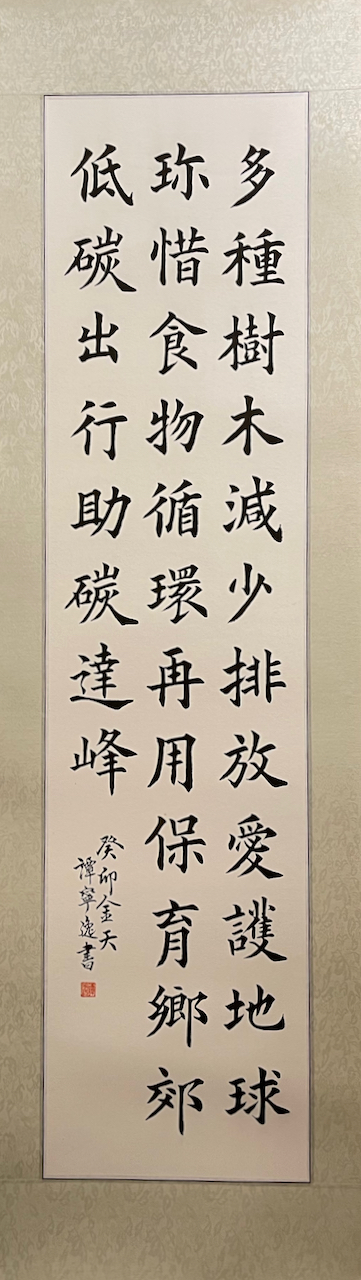 多種樹木減少排放愛護地球
珎惜食物循環再用保育鄉郊
低碳出行助碳達峰
癸卯金天
譚寧逸書